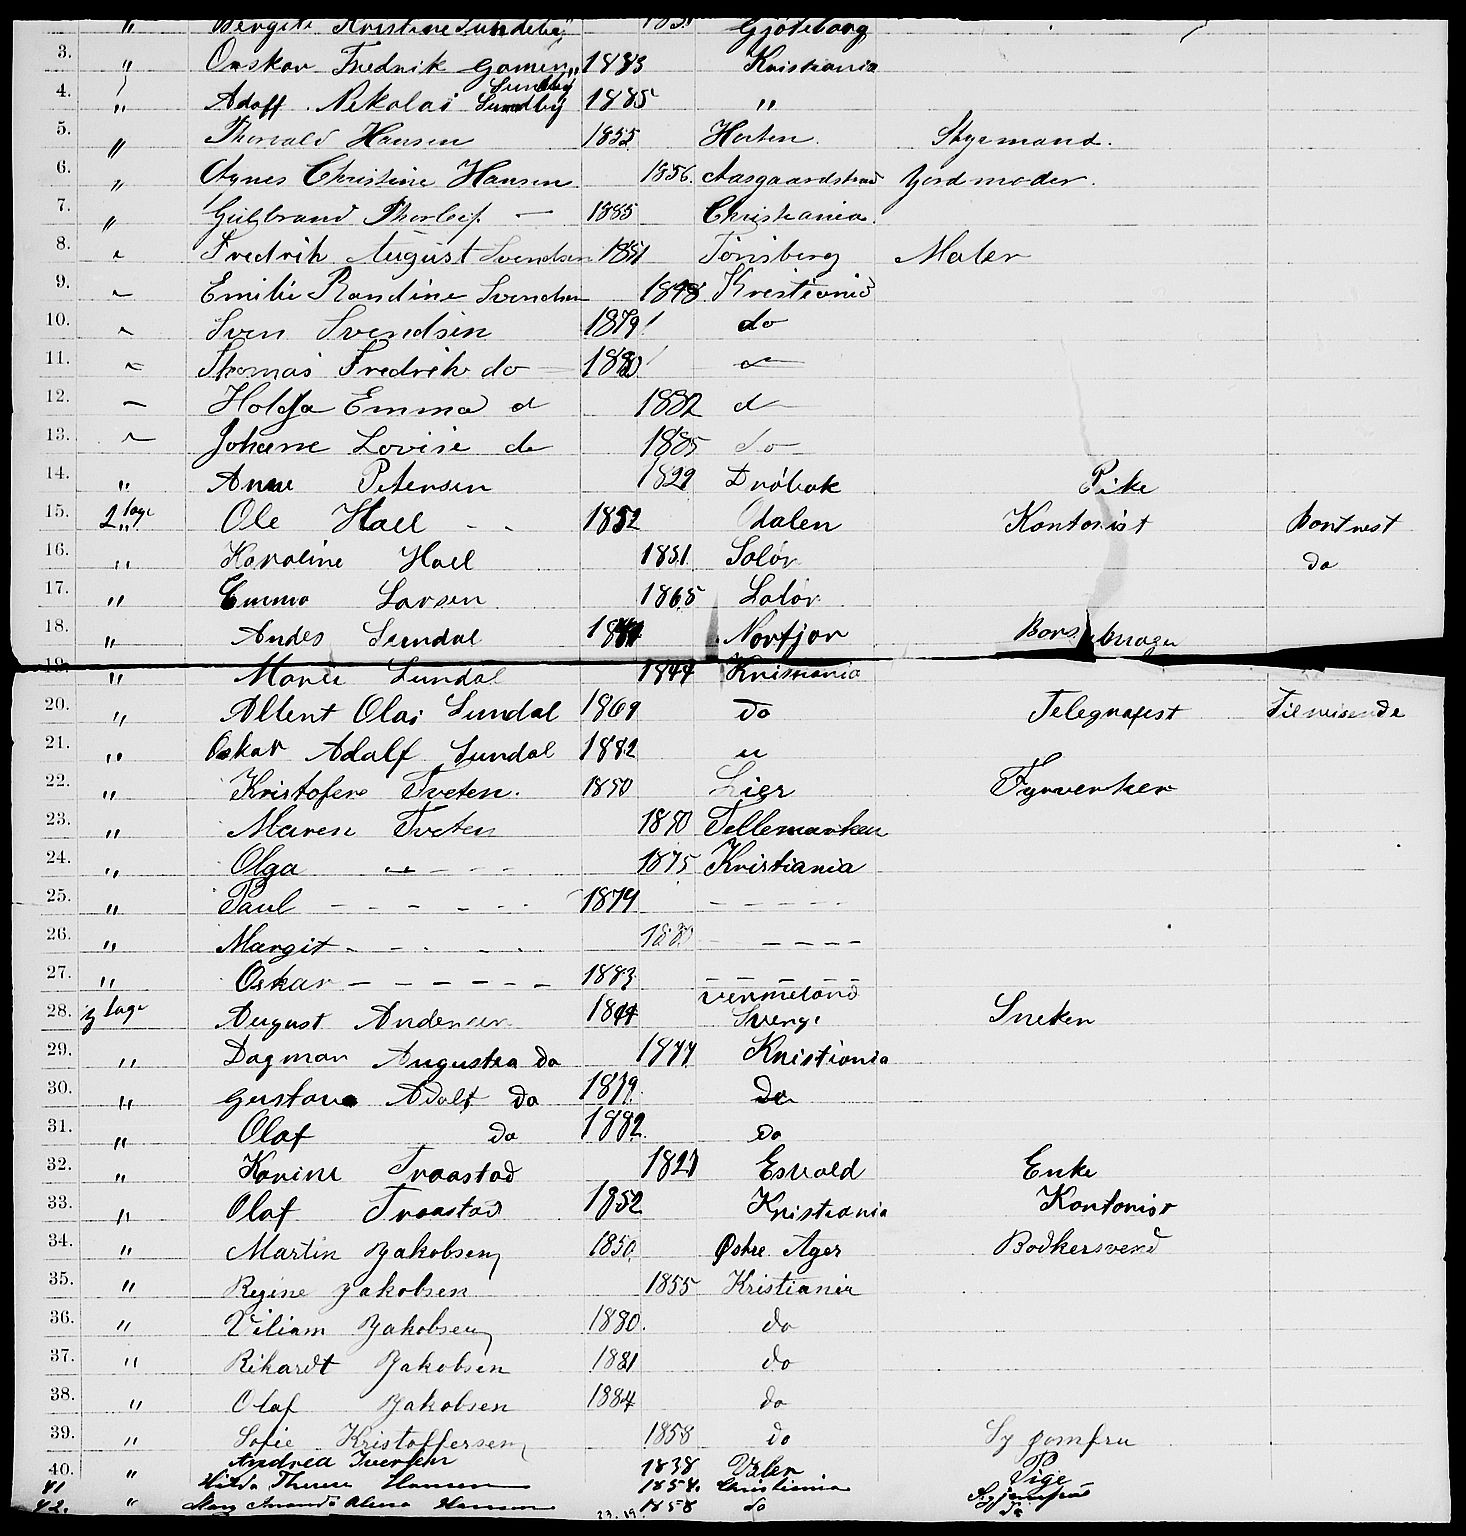 " Bergite Kristine Sundeby 1851 Gjöteborg
3. " Oskar Fredrik Gomen " 1883 Kristiania
Sundby
4. " Adolf Nikolai Sundby 1885 "
5. " Thorvald Hansen 1855 Horten Styrmand.
6. " Agnes Christine Hansen 1856. Aasgaardstrand Jordmoder.
7. " Gulbrand Thorleif — 1885 Christiania.
8. " Fredrik August Svendsen 1851 Tönsberg Maler
9. " Emilie Randine Svendsen 1848 Kristiania
10. " Sven Svendsen 1879 do
11. " Thomas Fredrik do 1880 do
12. " Holga Emma d 1882 d
13. " Johane Lovise do 1885 do
14. " Anne Petersen 1829 Dröbak Pike
15. 2 tage " Ole Hael - - 1852 Odalen Kontorist Bortrest
16. " Karoline Hael 1851. Solör do
17. " Emma Larsen 1865 Solör
18. " Andes Sundal Norfjor
19. " Marie Sundal 1844 Kristiania
20. " Albert Olai Sundal 1869 do Telegrafist Tilreisende
21. " Oskar Adolf Sundal 1882 "
22. " Kristofere Tveten. 1850 Lier Fyrverker
23. " Maren Tveten 1850 Tellemarken
24. " Olga — " — - - 1875 Kristiania
25. " Paul - - - - - 1879 - - - - -
26. " Margit - - - - - 1880 - - - - -
27. " Oskar - - - - - - 1883 - - - - -
Vermeland
28. 3 tage August Andersen 1844 Sverge Sneker
29. " Dagmar Augusta do 1877 Kristiania
30. " Gustava Adolf do 1879 do
31. " Olaf do 1882 do
32. " Karine Traastad 1821 Esvold Enke
33. " Olaf Traastad 1852 Kristiania Kontorist
34. " Martin Jakobsen 1850 Østre Ager Bødkersvend
35. " Regine Jakobsen 1855 Kristiania
36. " Viliam Jakobsen 1880. do
37. " Rikardt Jakobsen 1881 do
38. " Olaf Jakobsen 1884 do
39. " Sofie Kristoffersen 1858 do Syjomfru
40. " Andrea Iversen 1838 Valer Pige
41 Hilda Therese Hansen 1854. Christiania Syjomfru
42. " Amanda Hansen 1858 do do
23. 19.